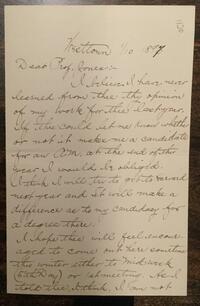 Westtown 1/10 1897
Dear Prof. Jones:-
I believe I have never
learned from thee thy opinion
of my work for the last year.
If thee could let me know wheth
er or not it make me a candidate
for an A.M. at the end of the
year I would be obliged.
I think I will try to get to Harvard
next year and it will make a
difference as to my candidacy for
a degree there.
I hope thee will feel encour
aged to come out here sometime
this winter either to mid-week
(5th day) or 1st meeting. As I
told thee I think I am not